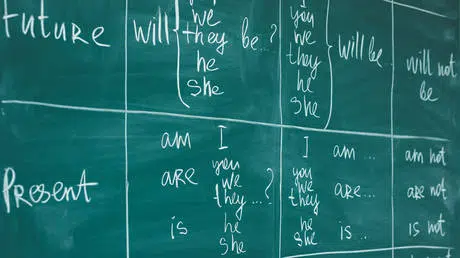 Future
will
you
we
they
he
she
be...?
I
you
we
they
he
she
will be...
will not
be
Present
am I
are
you
we
they...?
is
he
she
I am...
you
we
they
are...
he
she
is...
am not
are not
is not